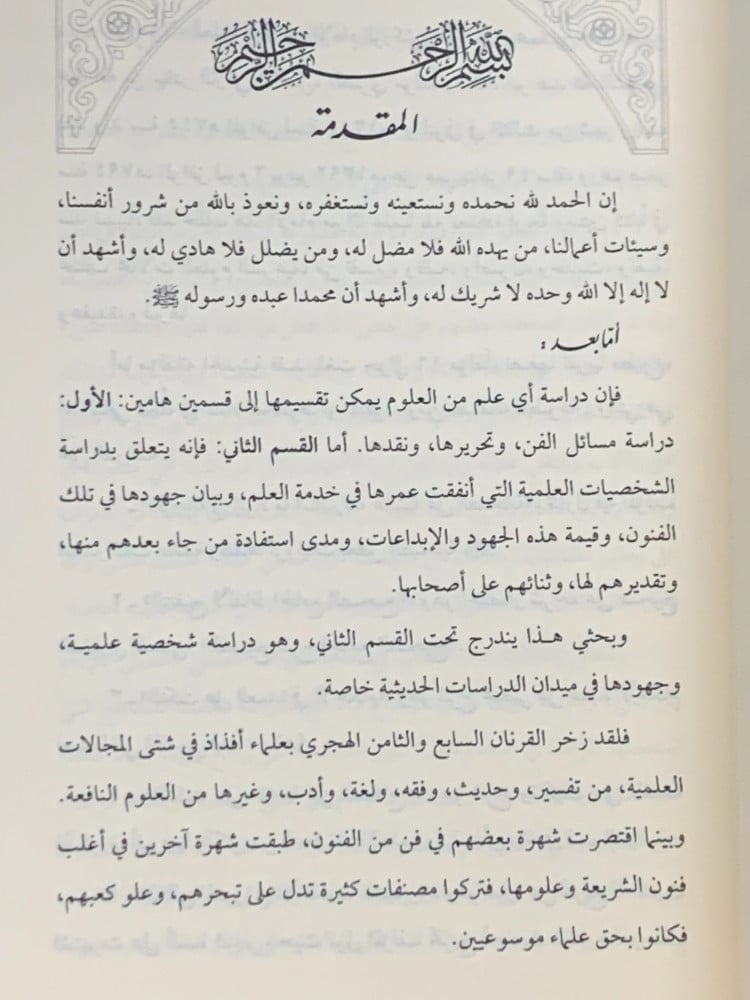 بسم الله الرحمن الرحيم
المقدمة
إن الحمد لله نحمده ونستعينه ونستغفره، ونعوذ بالله من شرور أنفسنا،
وسيئات أعمالنا، من يهده الله فلا مضل له، ومن يضلل فلا هادي له، وأشهد أن
لا إله إلا الله وحده لا شريك له، وأشهد أن محمدا عبده ورسوله ﷺ.
أما بعد:
فإن دراسة أي علم من العلوم يمكن تقسيمها إلى قسمين هامين: الأول:
دراسة مسائل الفن، وتحريرها، ونقدها. أما القسم الثاني: فإنه يتعلق بدراسة
الشخصيات العلمية التي أنفقت عمرها في خدمة العلم، وبيان جهودها في تلك
الفنون، وقيمة هذه الجهود والإبداعات، ومدى استفادة من جاء بعدهم منها،
وتقديرهم لها، وثنائهم على أصحابها.
وبحثي هذا يندرج تحت القسم الثاني، وهو دراسة شخصية علمية،
وجهودها في ميدان الدراسات الحديثية خاصة.
فلقد زخر القرنان السابع والثامن الهجري بعلماء أفذاذ في شتى المجالات
العلمية، من تفسير، وحديث، وفقه، ولغة، وأدب، وغيرها من العلوم النافعة.
وبينما اقتصرت شهرة بعضهم في فن من الفنون، طبقت شهرة آخرين في أغلب
فنون الشريعة وعلومها، فتركوا مصنفات كثيرة تدل على تبحرهم، وعلو كعبهم،
فكانوا بحق علماء موسوعيين.